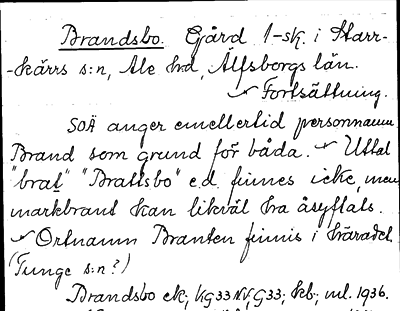 Brandsbo. Gård 1-sk. i Starr-
-kärrs s:n, Ale hd, Älfsborgs län.
Fortsättning.
SOÄ anger emellertid personnamn
Brand som grund för båda. Uttal
"brat" "Brattsbo" e.d. finnes icke, men
markbrant kan likväl ha åsyftats.
Ortnamn Branten finnis i häradet
(Tunge s:n?)
Brandsbo ek; KG33NV, G33; kb; ml. 1936.